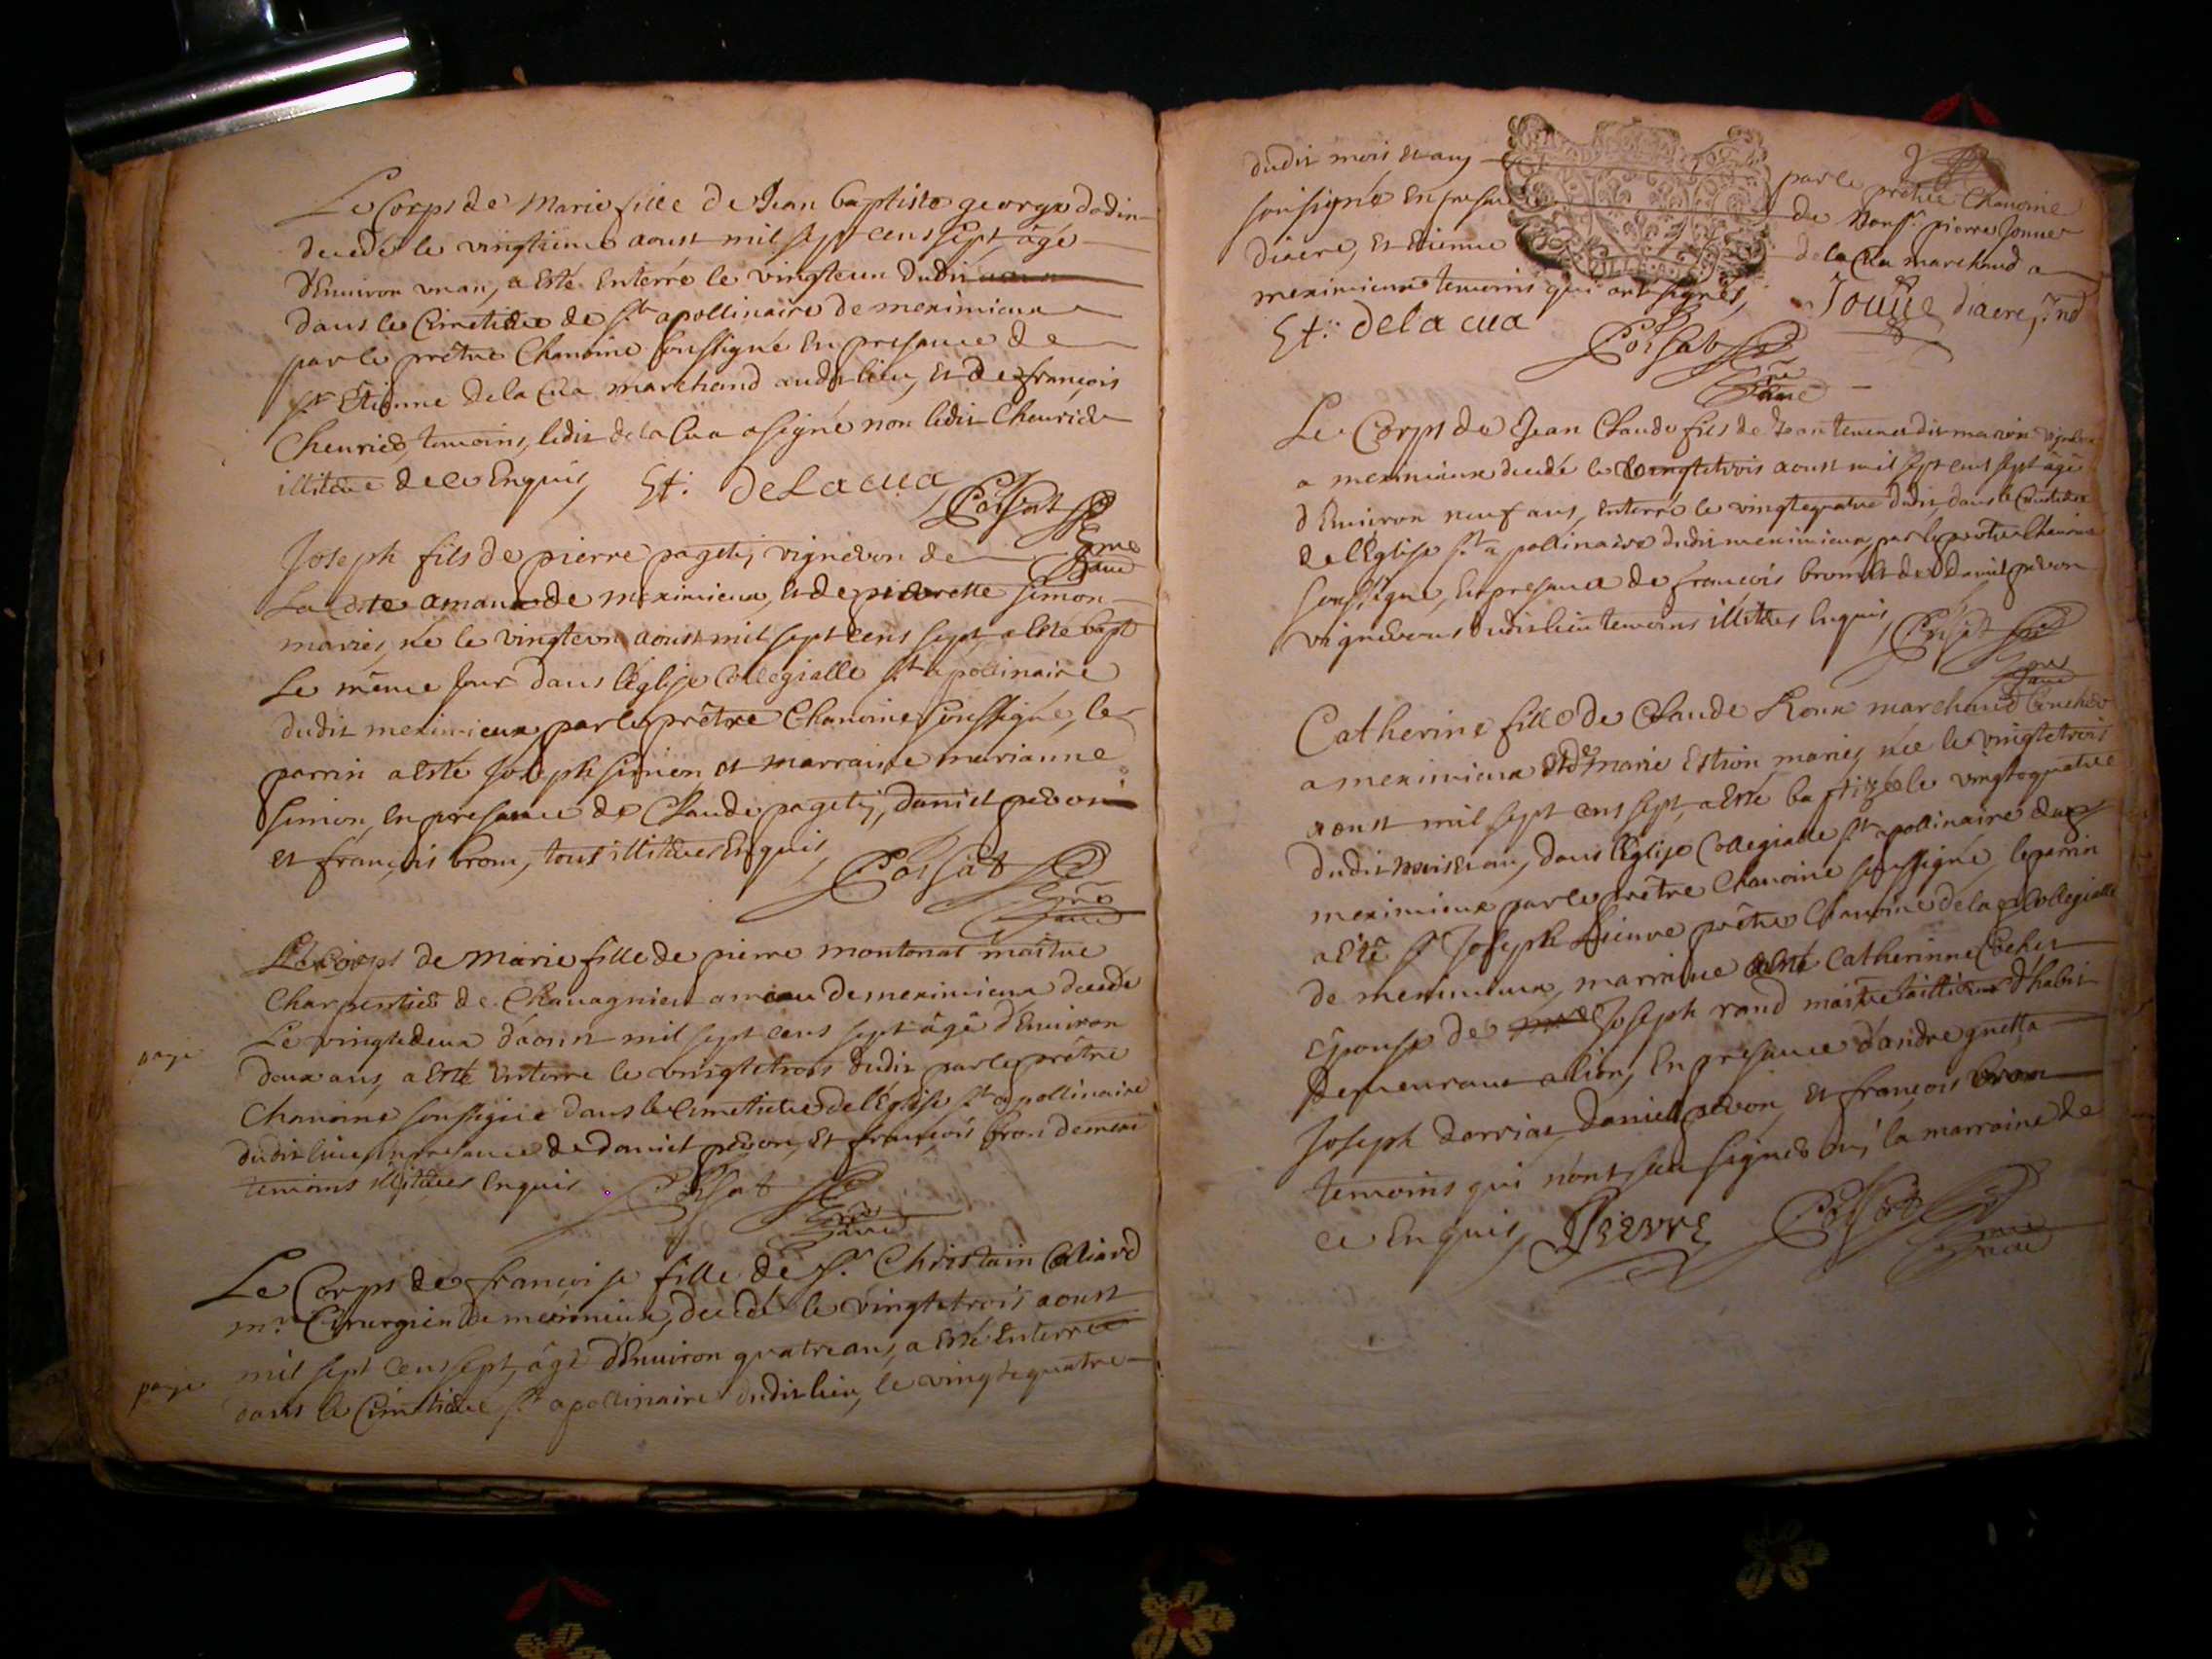 Le Corps de Marie fille de Jean baptiste george dodin
decedé le vingtieme aoust mil sept cens sept, âgé
d'Enuiron un an, a Esté Enterré le vingteun dudit
dans le Cimetiere de St apollinaire de meximieux
par le prêtre Chanoine soussigné En presance de
Sr Etienne de la Cua marchand audit lieu, et de françois
Cheurier, temoins, ledit de la Cua a signé non ledit Cheurier
illiteré de ce Enquis, Et: De La cua
Joseph fils de pierre pagety vigneron de
La Coste amau de meximieux, et de pierrette simon
mariés, né le vingteun aoust mil sept cens sept, a Esté bapt
Le même Jour dans l'église Collegialle St apollinaire
dudit meximieux, par le prêtre Chanoine soussigné, le
parrin a Esté Joseph simon et marraine marianne
simon, En presance de Claude pagety, daniel
et françois bron, tous illiterés Enquis
Le Corps de Marie fille de pierre montanat maitre
Charpentier de Chauagnieu ameau de meximieux decedé
Le vingtedeux d'aoust mil sept cens sept âgé d'Enuiron
deux ans, a Esté Enterré le vingtetrois dudit par le prêtre
Chanoine soussigné dans le Cimetiere de l'Eglise St apollinaire
dudit lieu, En presance de daniel et françois bron de mexi
temoins illiterés Enquis
Le Corps de françoise fille de Sr Christain Colliard
mr Cirurgien de meximieux, decedé le vingtetrois aoust
mil sept cens sept, âgé d'Enuiron quatre ans, a Esté Enterré
dans le Cimetiere St apollinaire dudit lieu, le vingtequatre
dudit mois et an par le prêtre Chanoine
sousigné En presance de Monsr pierre Jouue
diacre, Et Etienne de la Cua marchand a
meximieux temoins qui ont signés,
Et: De la cua Jouue diacre
Le Corps de Jean Claude fils de Jean dit marion
a meximieux decedé le vingtetrois aoust mil sept cens sept âgé
d'Enuiron neuf ans, Enterré le vingtequatre dudit, dans le Cimetiere
de l'Eglise St apollinaire dudit meximieux, par le prêtre Chanoine
soussigné, En presance de françois bron et de daniel
vignerons dudit lieu temoins illiterés Enquis
Catherine fille de Claude Roux marchand
a meximieux Et de marie Estion, mariés, née le vingtetrois
aoust mil sept cens sept, a Esté baptizée le vingtequatre
dudit mois et an, dans l'Eglise Collegialle St apollinaire
meximieux par le prêtre Chanoine soussigné, le parrin
a Esté Sr Joseph prêtre Chanoine de la Collegialle
de meximieux, marraine Catherinne
Epouse de Joseph rand maitre d'habit
demeurant a lion, En presance d'andre guetta
Joseph dorriat daniel et françois bron
temoins qui n'ont sceu signer ny la marraine de
ce Enquis,